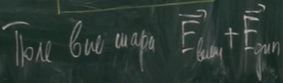 Поле вне шара E⃗внеш + E⃗дип